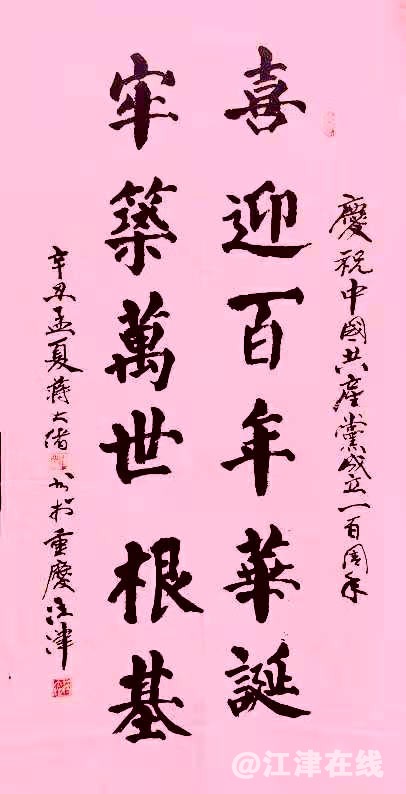 慶祝中國共產黨成立一百周年
喜迎百年華誕
牢築萬世根基
辛丑孟夏蔣大緒書於重慶江津
@江津在线